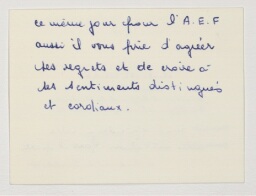 ce même jour pour l'A.E.F
aussi il vous prie d'agréer
ses regrets et de croire à
ses sentiments distingués
et cordiaux.